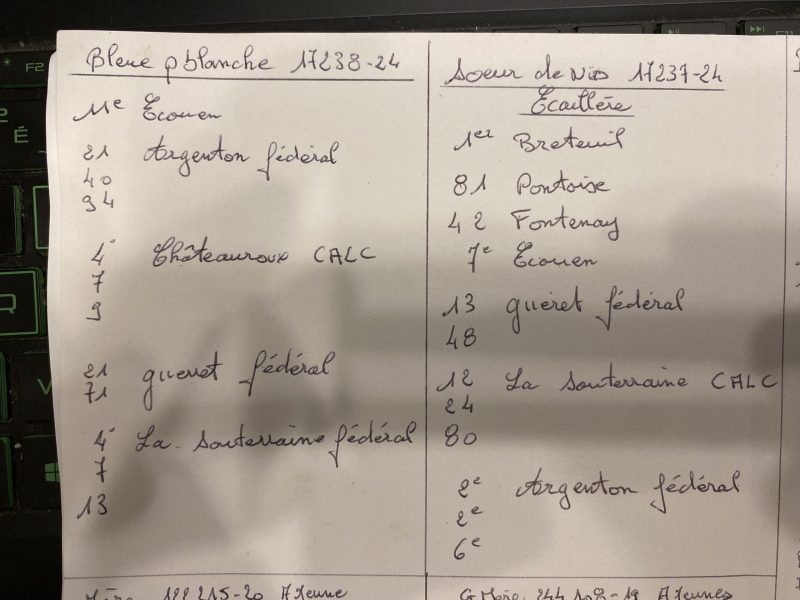 Bleue p blanche 17238-24
11e Ecouen
21 Argenton fédéral
40
94
4° Châteauroux CALC
7
9
21 gueret fédéral
71
4° La Souterraine fédéral
7
13
122215-20 A Jeune
Soeur de 17237-24
Ecaillée
1er Breteuil
81 Pontoise
42 Fontenay
7e Ecouen
13 guéret fédéral
48
12 La Souterraine CALC
24
80
2e Argenton fédéral
2e
6e
G Mère 244108-19 A Jeunes
F2
É
R
V